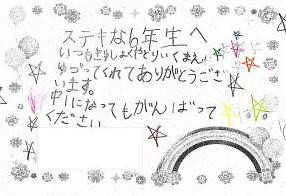 ステキな6年生へ
いつもきゅうしょくだとりにくまえに
ゆづってくれてありがとうござ
います。
中1になってもがんばって
ください